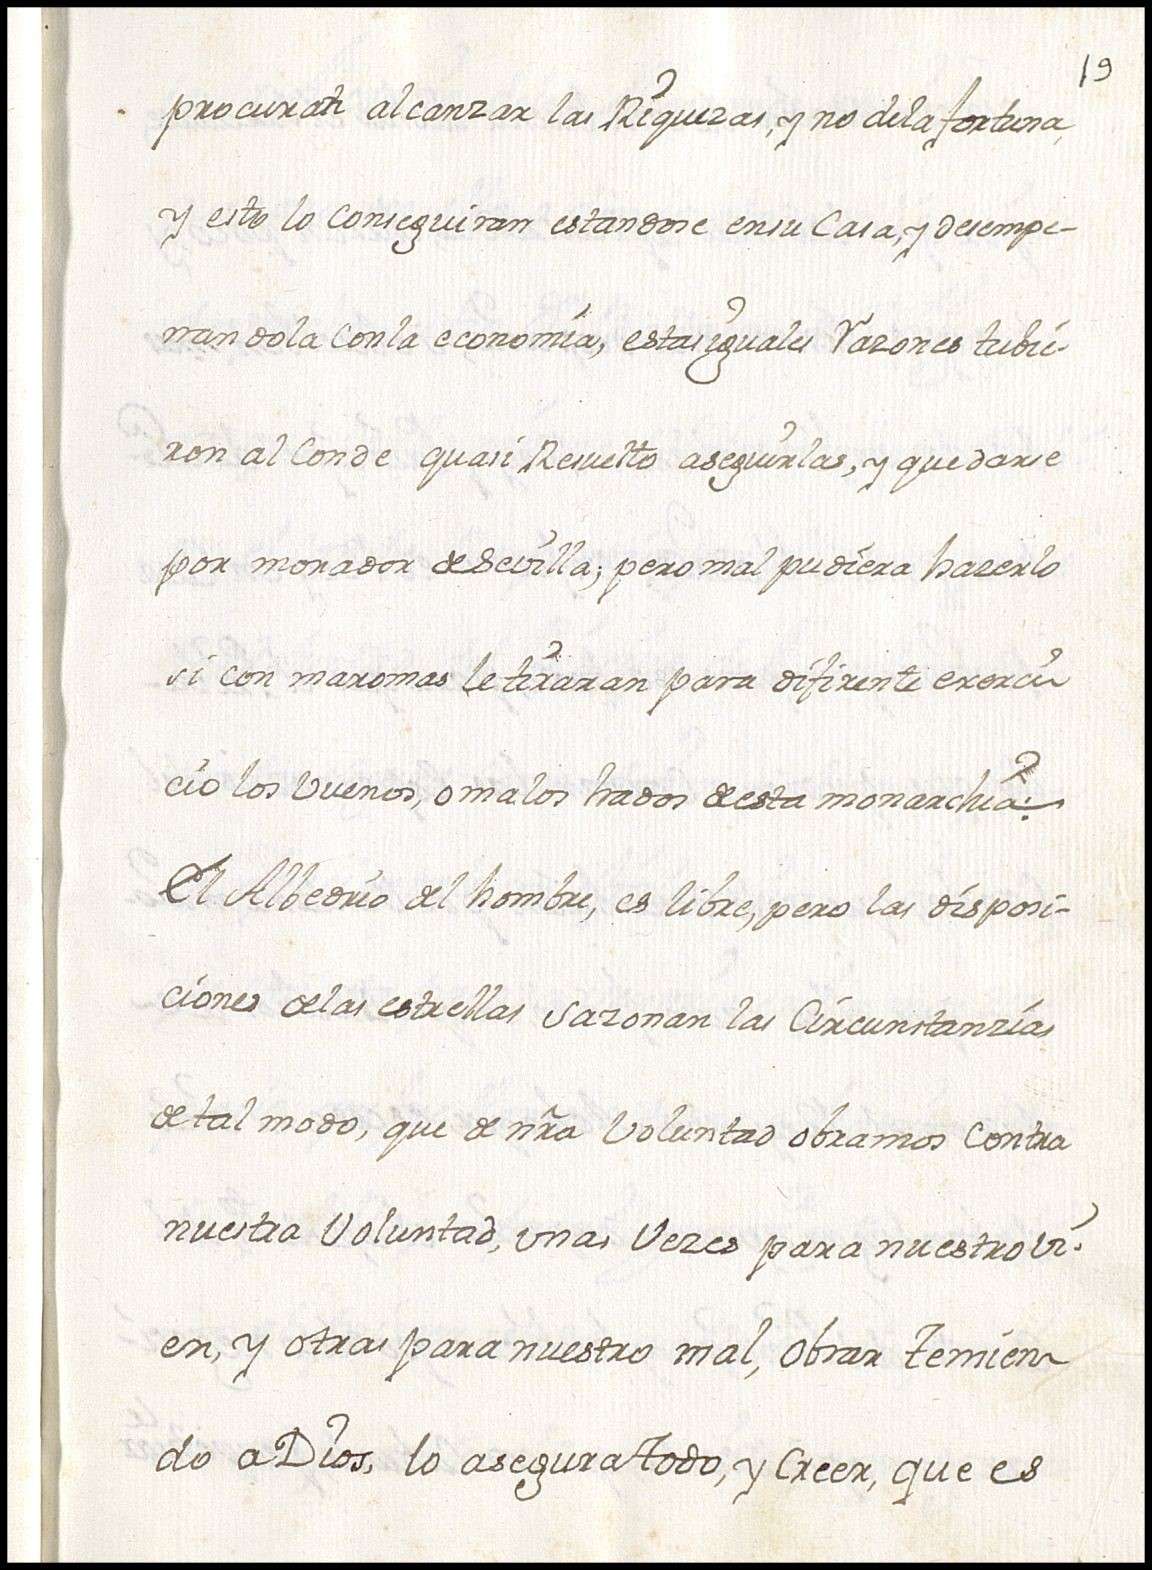 19
procurati alcanzar las Riquezas, y no dela fortuna,
y esto lo conseguiran estandose ensu Casa, y desempe-
nandola conla economía, estas iguales Razones tubie-
ron al Conde quasi Resuelto aseguirlas, y quedarse
por morador de Sevilla; pero mal pudiera hazerlo
si con maromas le tiraran para difirente exerci-
cio los buenos, o malos hados de esta monarchia:
El Albedrio del hombre, es libre, pero las disposi-
ciones delas estrellas sazonan las Circunstanzias
de tal modo, que de nr̃a Voluntad obramos contra
nuestra Voluntad, vnas Vezes para nuestro vi-
en, y otras para nuestro mal, obrar temien-
do a Dios, lo asegura todo, y Creer, que es